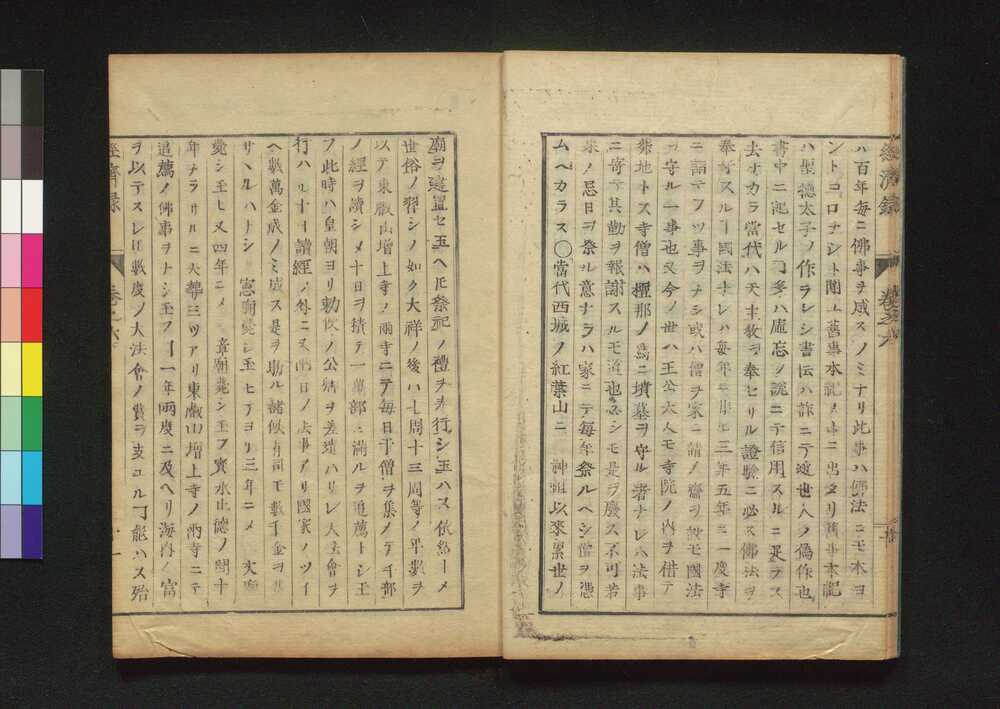 經濟録
卷之六
八百年毎ニ佛事ヲ咸スノミナリ此事ハ佛法ニモ本ヨ
ントコロナシト聞ユ舊事本紀ノ中ニ出タリ舊事本記
ハ聖德太子ノ作ラレシ書伝ハ詐ニテ近世人ノ偽作也
書中ニ記セル
多ハ虛忘ノ説ニテ信用スルニ足ラス
去ナカラ當代ハ天主教ヲ奉セサル證驗ニ必ス佛法ヲ
奉行スル
國法ナレハ毎年
三年五年ニ一度寺
ニ詣テフツ事ヲナシ或ハ僧ヲ家ニ請ノ齋ヲ設モ國法
ヲ守ル一事也又今ノ世ハ王公大人モ寺院ノ内ヲ借テ
葬地トス寺僧ハ檀那ノ爲ニ墳墓ヲ守ル者ナレハ法事
ニ寄テ其勤ヲ報謝スルモ道也必シモ是ヲ廢ス不可若
來ノ忌日ヲ祭ル意ナラハ家ニテ毎年祭ルヘシ僧ヲ憑
ムヘカラス〇當代西城ノ紅葉山ニ 神祖以來累世ノ
廟ヲ建置セ玉ヘ𪜈祭祀ノ禮ヲ
行シ玉ハス
世俗ノ習シノ如ク大祥ノ後ハ七周十三周等ノ年數ヲ
以テ東叡山増上寺ノ兩寺ニテ毎日千僧ヲ集メテ千部
ノ經ヲ讀シメ十日ヲ積テ一萬部ニ滿ルヲ追薦トシ玉
フ此時ハ皇朝ヨリ勅使ノ公
ヲ差遣ハサレ大法會ヲ
行ハル十日讀經ノ外ニ又
日ノ法事アリ國家ノツイ
ヘ數萬金咸ノミ咸ス是ヲ助ル諸侯有司モ數千金ヲ
サヘルハナシ 憲廟薨シ玉ヒテヨリ三年ニメ 文廟
薨シ玉ヒ又四年ニメ 章廟薨シ玉フ寶永正德ノ間十
年ナラサルニ大葬三ツアリ東叡山増上寺ノ兩寺ニテ
追薦ノ佛事ヲナシ玉フ
一年兩度ニ及ヘリ海内ノ富
ヲ以テスレ𪜈數度ノ大法會ノ費ヲ支ユル
能ハス殆
經濟録
卷之六